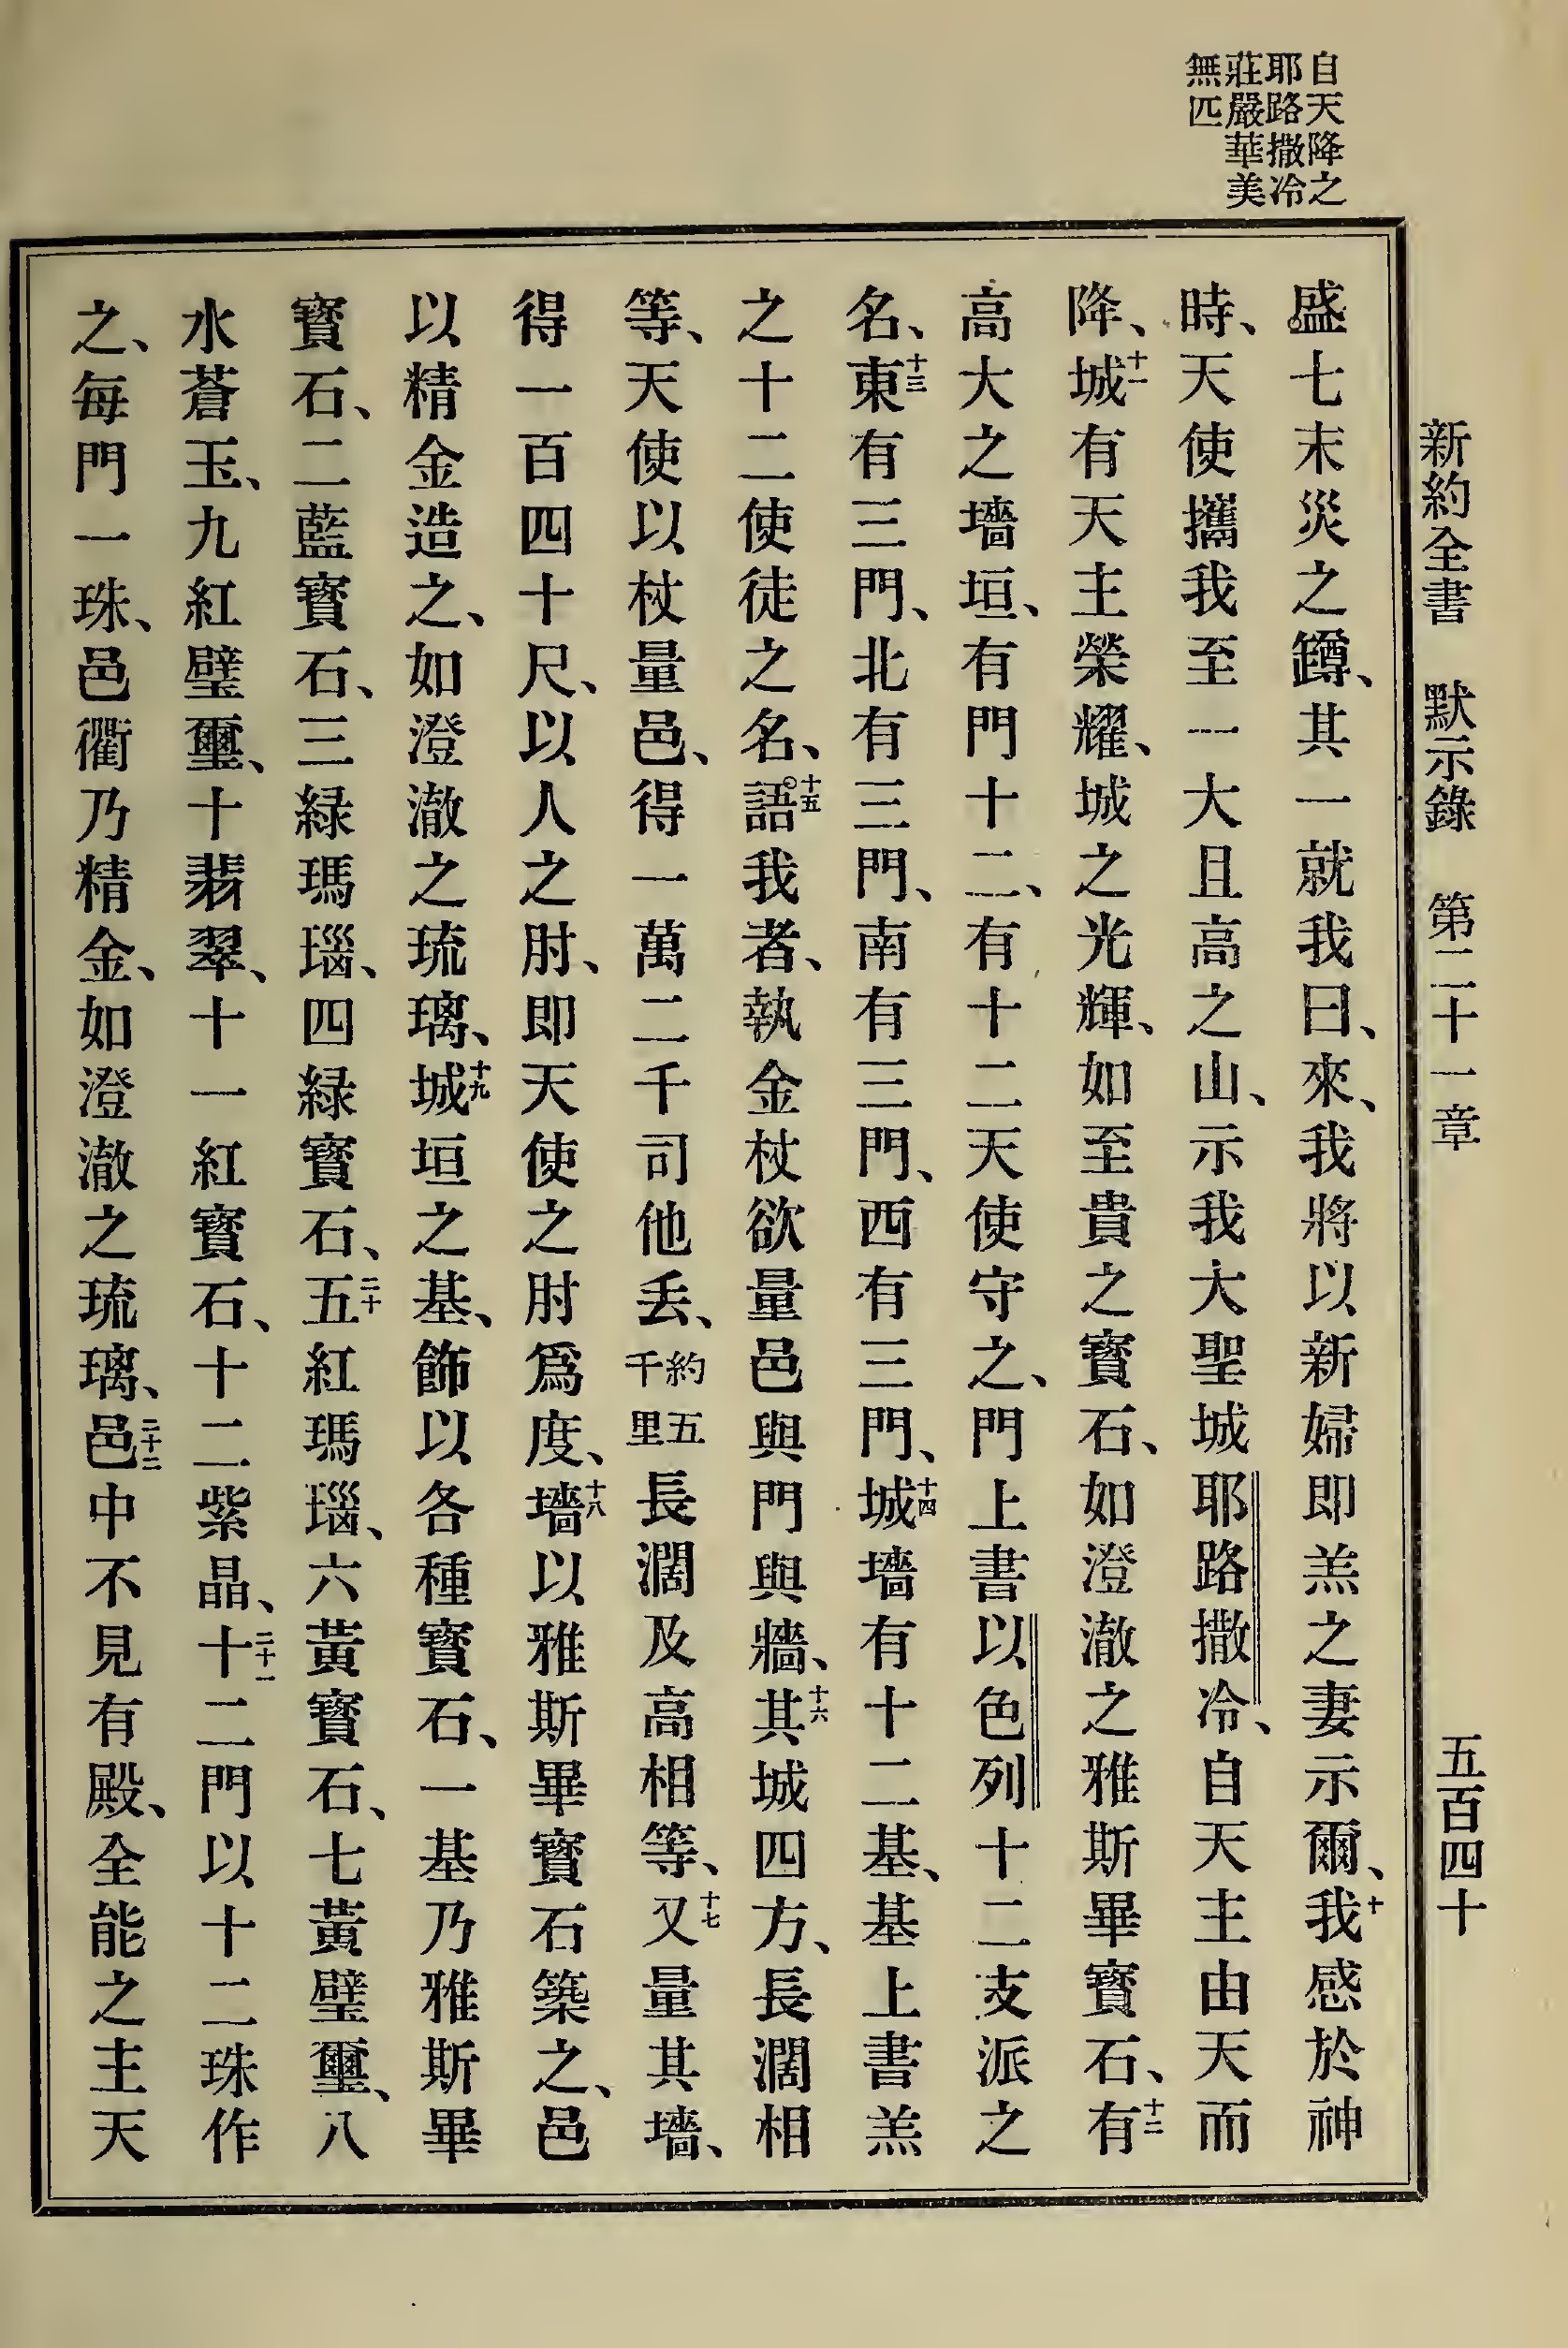 新約全書　默示錄　第二十一章　五百四十
自天降之
耶路撒冷
莊嚴華美
無匹
盛七末災之罇、其一就我曰、來、我將以新婦即羔之妻示爾、十我感於神
時、天使攜我至一大且高之山、示我大聖城耶路撒冷、自天主由天而
降、十一城有天主榮耀、城之光輝、如至貴之寳石、如澄澈之雅斯畢寳石、十二有
高大之墻垣、有門十二、有十二天使守之、門上書以色列十二支派之
名、十三東有三門、北有三門、南有三門、西有三門、十四城墻有十二基、基上書羔
之十二使徒之名、十五語我者、執金杖欲量邑與門與牆、十六其城四方、長濶相
等、天使以杖量邑、得一萬二千司他丢、約五千里長濶及高相等、十七又量其墻、
得一百四十尺、以人之肘、即天使之肘爲度、十八墻以雅斯畢寳石築之、邑
以精金造之、如澄澈之琉璃、十九城垣之基、飾以各種寳石、一基乃雅斯畢
寳石、二藍寳石、三緑瑪瑙、四緑寳石、二十五紅瑪瑙、六黃寳石、七黃璧璽、八
水蒼玉、九紅璧璽、十翡翠、十一紅寳石、十二紫晶、二十一十二門以十二珠作
之、每門一珠、邑衢乃精金、如澄澈之琉璃、二十二邑中不見有殿、全能之主天